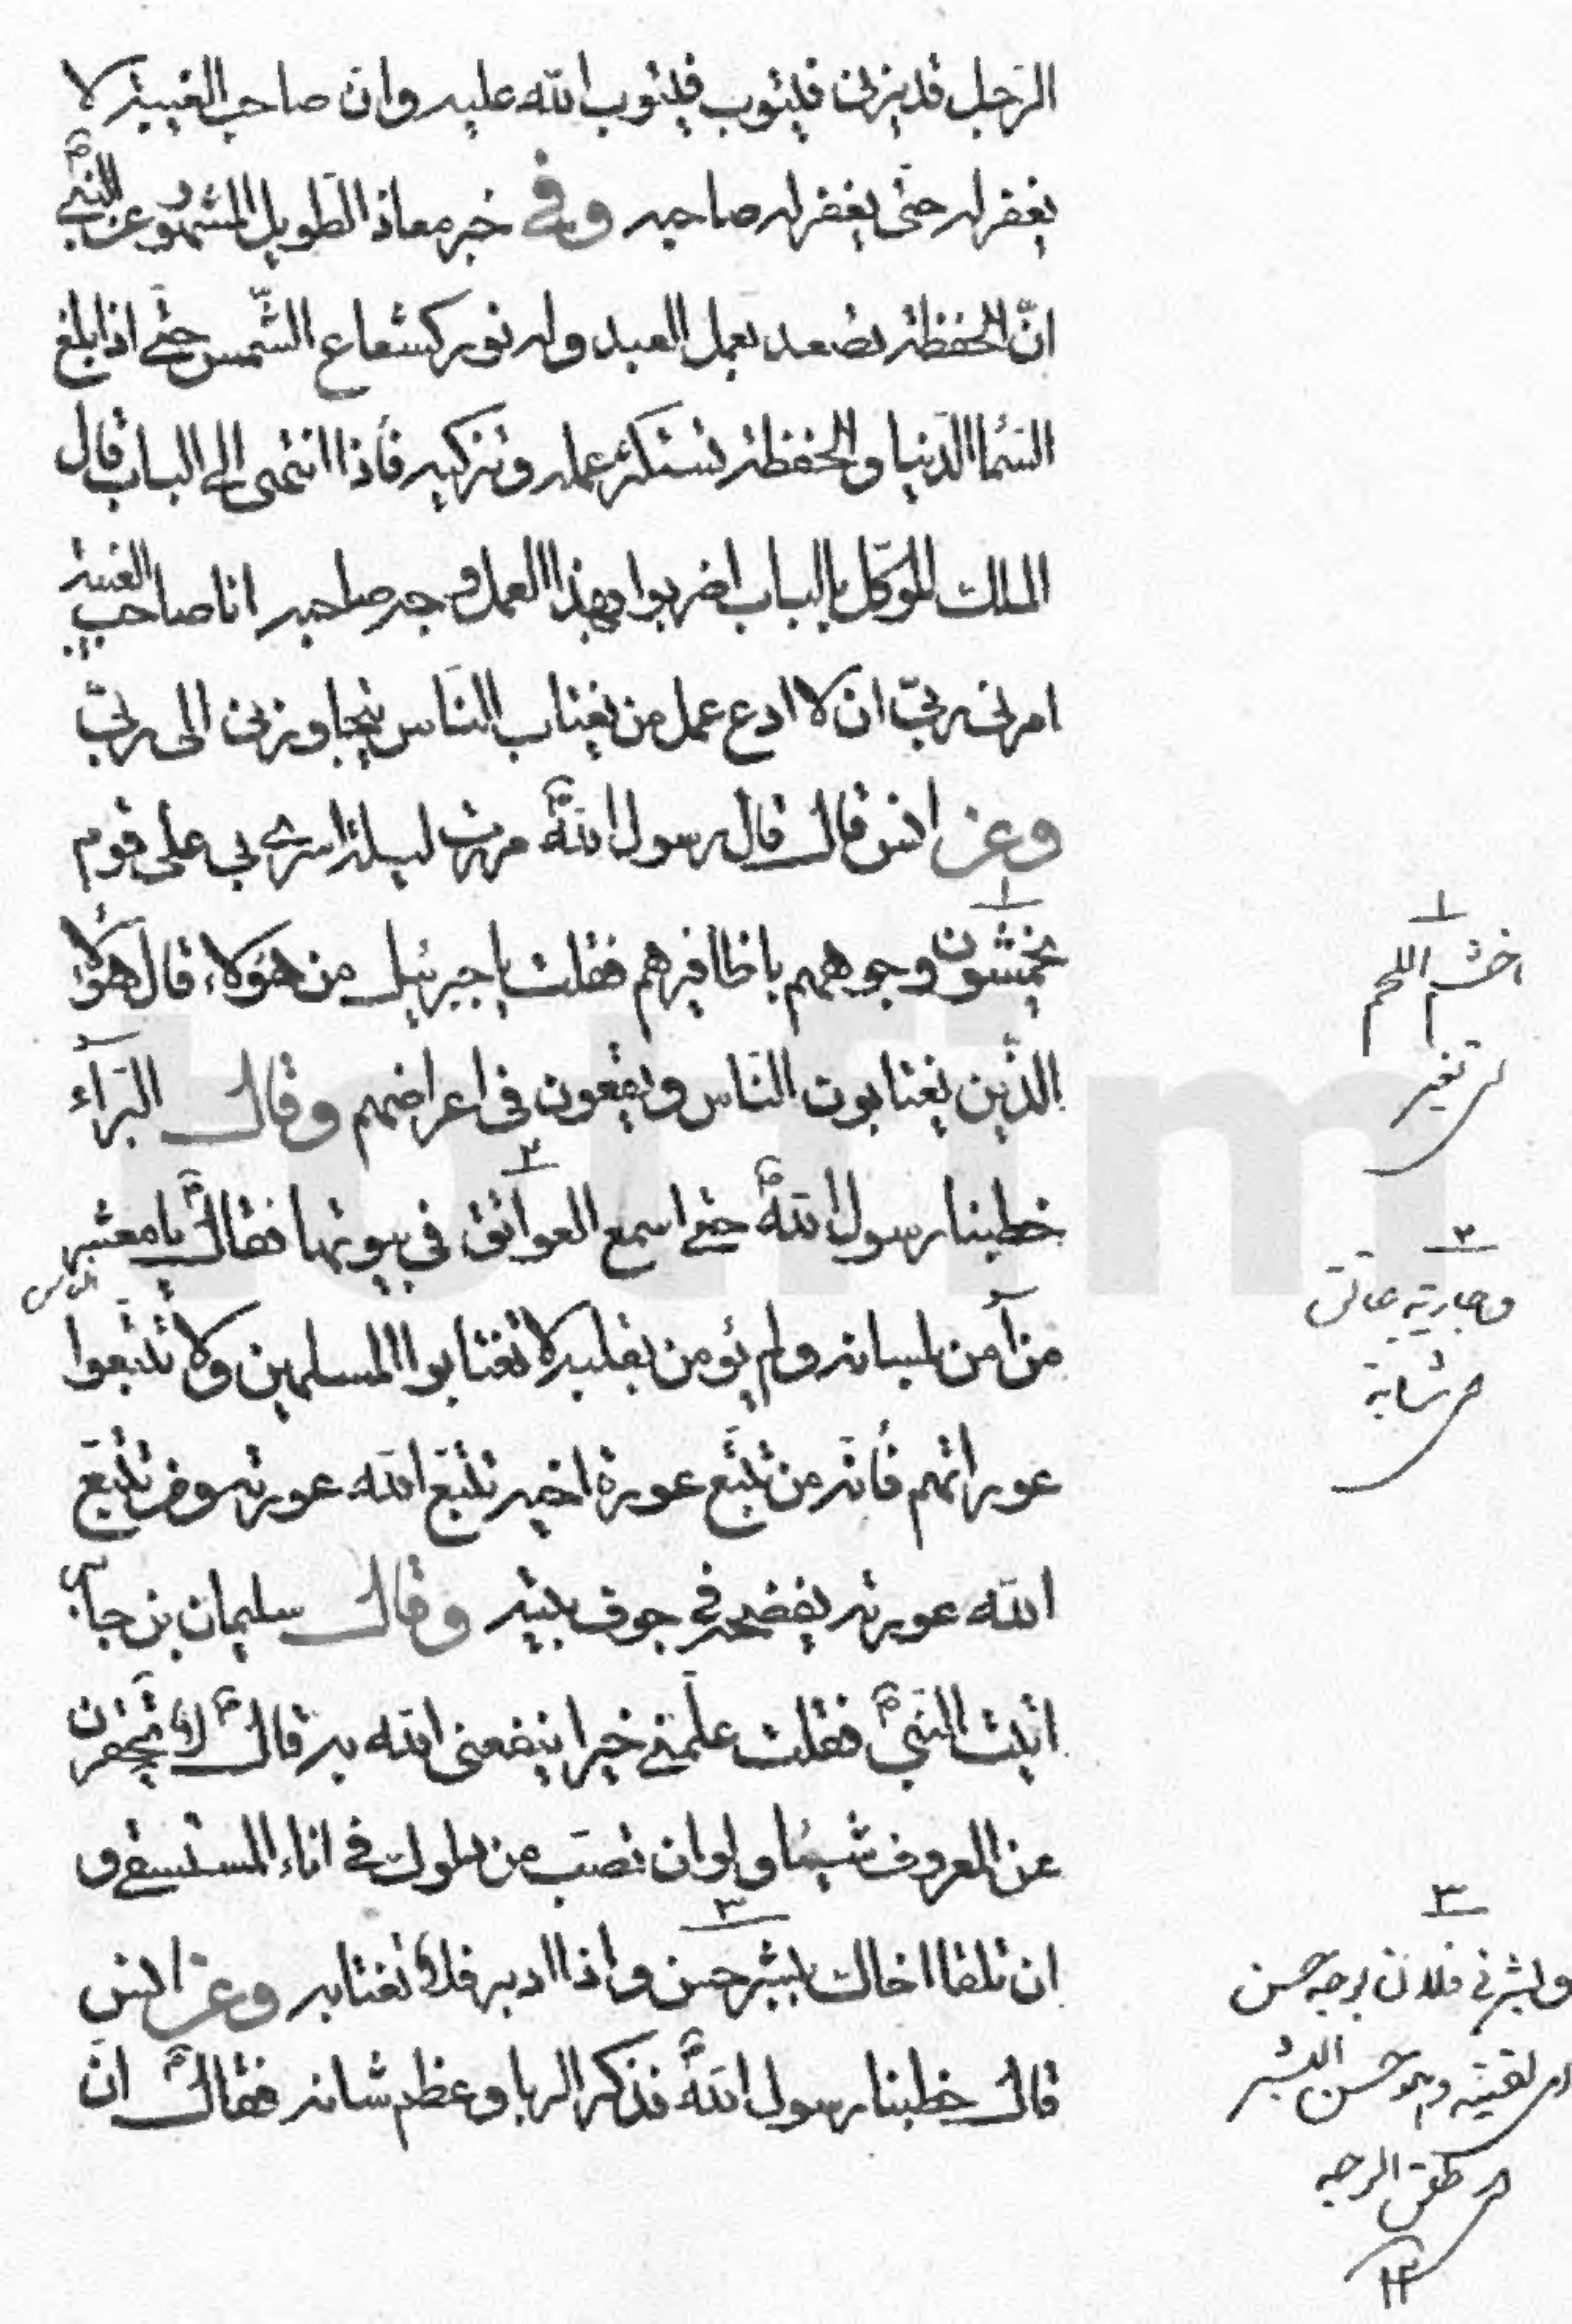 الرّجل قد يزنى فيتوب فيتوب الله عليه وان صاحب الغيبة لا
يغفر له حتى يغفر له صاحبه وفي خبر معاذ الطويل المشهور عن النبي ص
انّ الحفظة تصعد بعمل العبد وله نور كشعاع الشّمس حتى اذا بلغ
السّماء الدّنيا والحفظة تستكثر عمله وتزكيه فأذا انتهى الى الباب قال
الملك الموكّل بالباب اضربوا بهذا العمل وجه صاحبه انا صاحب الغيبة
امرنى ربّي ان لا ادع عمل من يغتاب النّاس يتجاوزنى الى ربّي
وعن انس قال قال رسول الله ص مررت ليلة اسرى بى على قوم
يخمشون وجوههم باظافيرهم فقلت يا جبرئيل من هؤلاء قال هؤلاء
الذّين يغتابون النّاس ويقعون فى اعراضهم وقال البرآء
خطبنا رسول الله ص حتى اسمع العواتق فى بيوتها فقال ص يا معشر الناس
من آمن بلسانه ولم يؤمن بقلبه لا تغتابوا المسلمين ولا تتّبعوا
عوراتهم فأنّه من تتبّع عورة اخيه تتبّع الله عورته ومن تتبّع
الله عورته يفضحه في جوف بيته وقال سليمان بن جابر
اتيت النبيّ ص فقلت علّمني خيرا ينفعنى الله به قال ص لا تحقرن
عن المعروف شيئا ولو ان تصبّ من دلوك في اناء المستسقي و
ان تلقا اخاك ببشر حسن واذا ادبر فلا تغتابه وعن انس
قال خطبنا رسول الله ص فذكر الربا وعظم شانه فقال ص انّ
١
اللحم
اى تغير
٢
وجارية عاتق
اى شابة
٣
وبشرنى فلان بوجه حسن
اى لقيته وهو حسن البشر
اى طلق الوجه
١٢